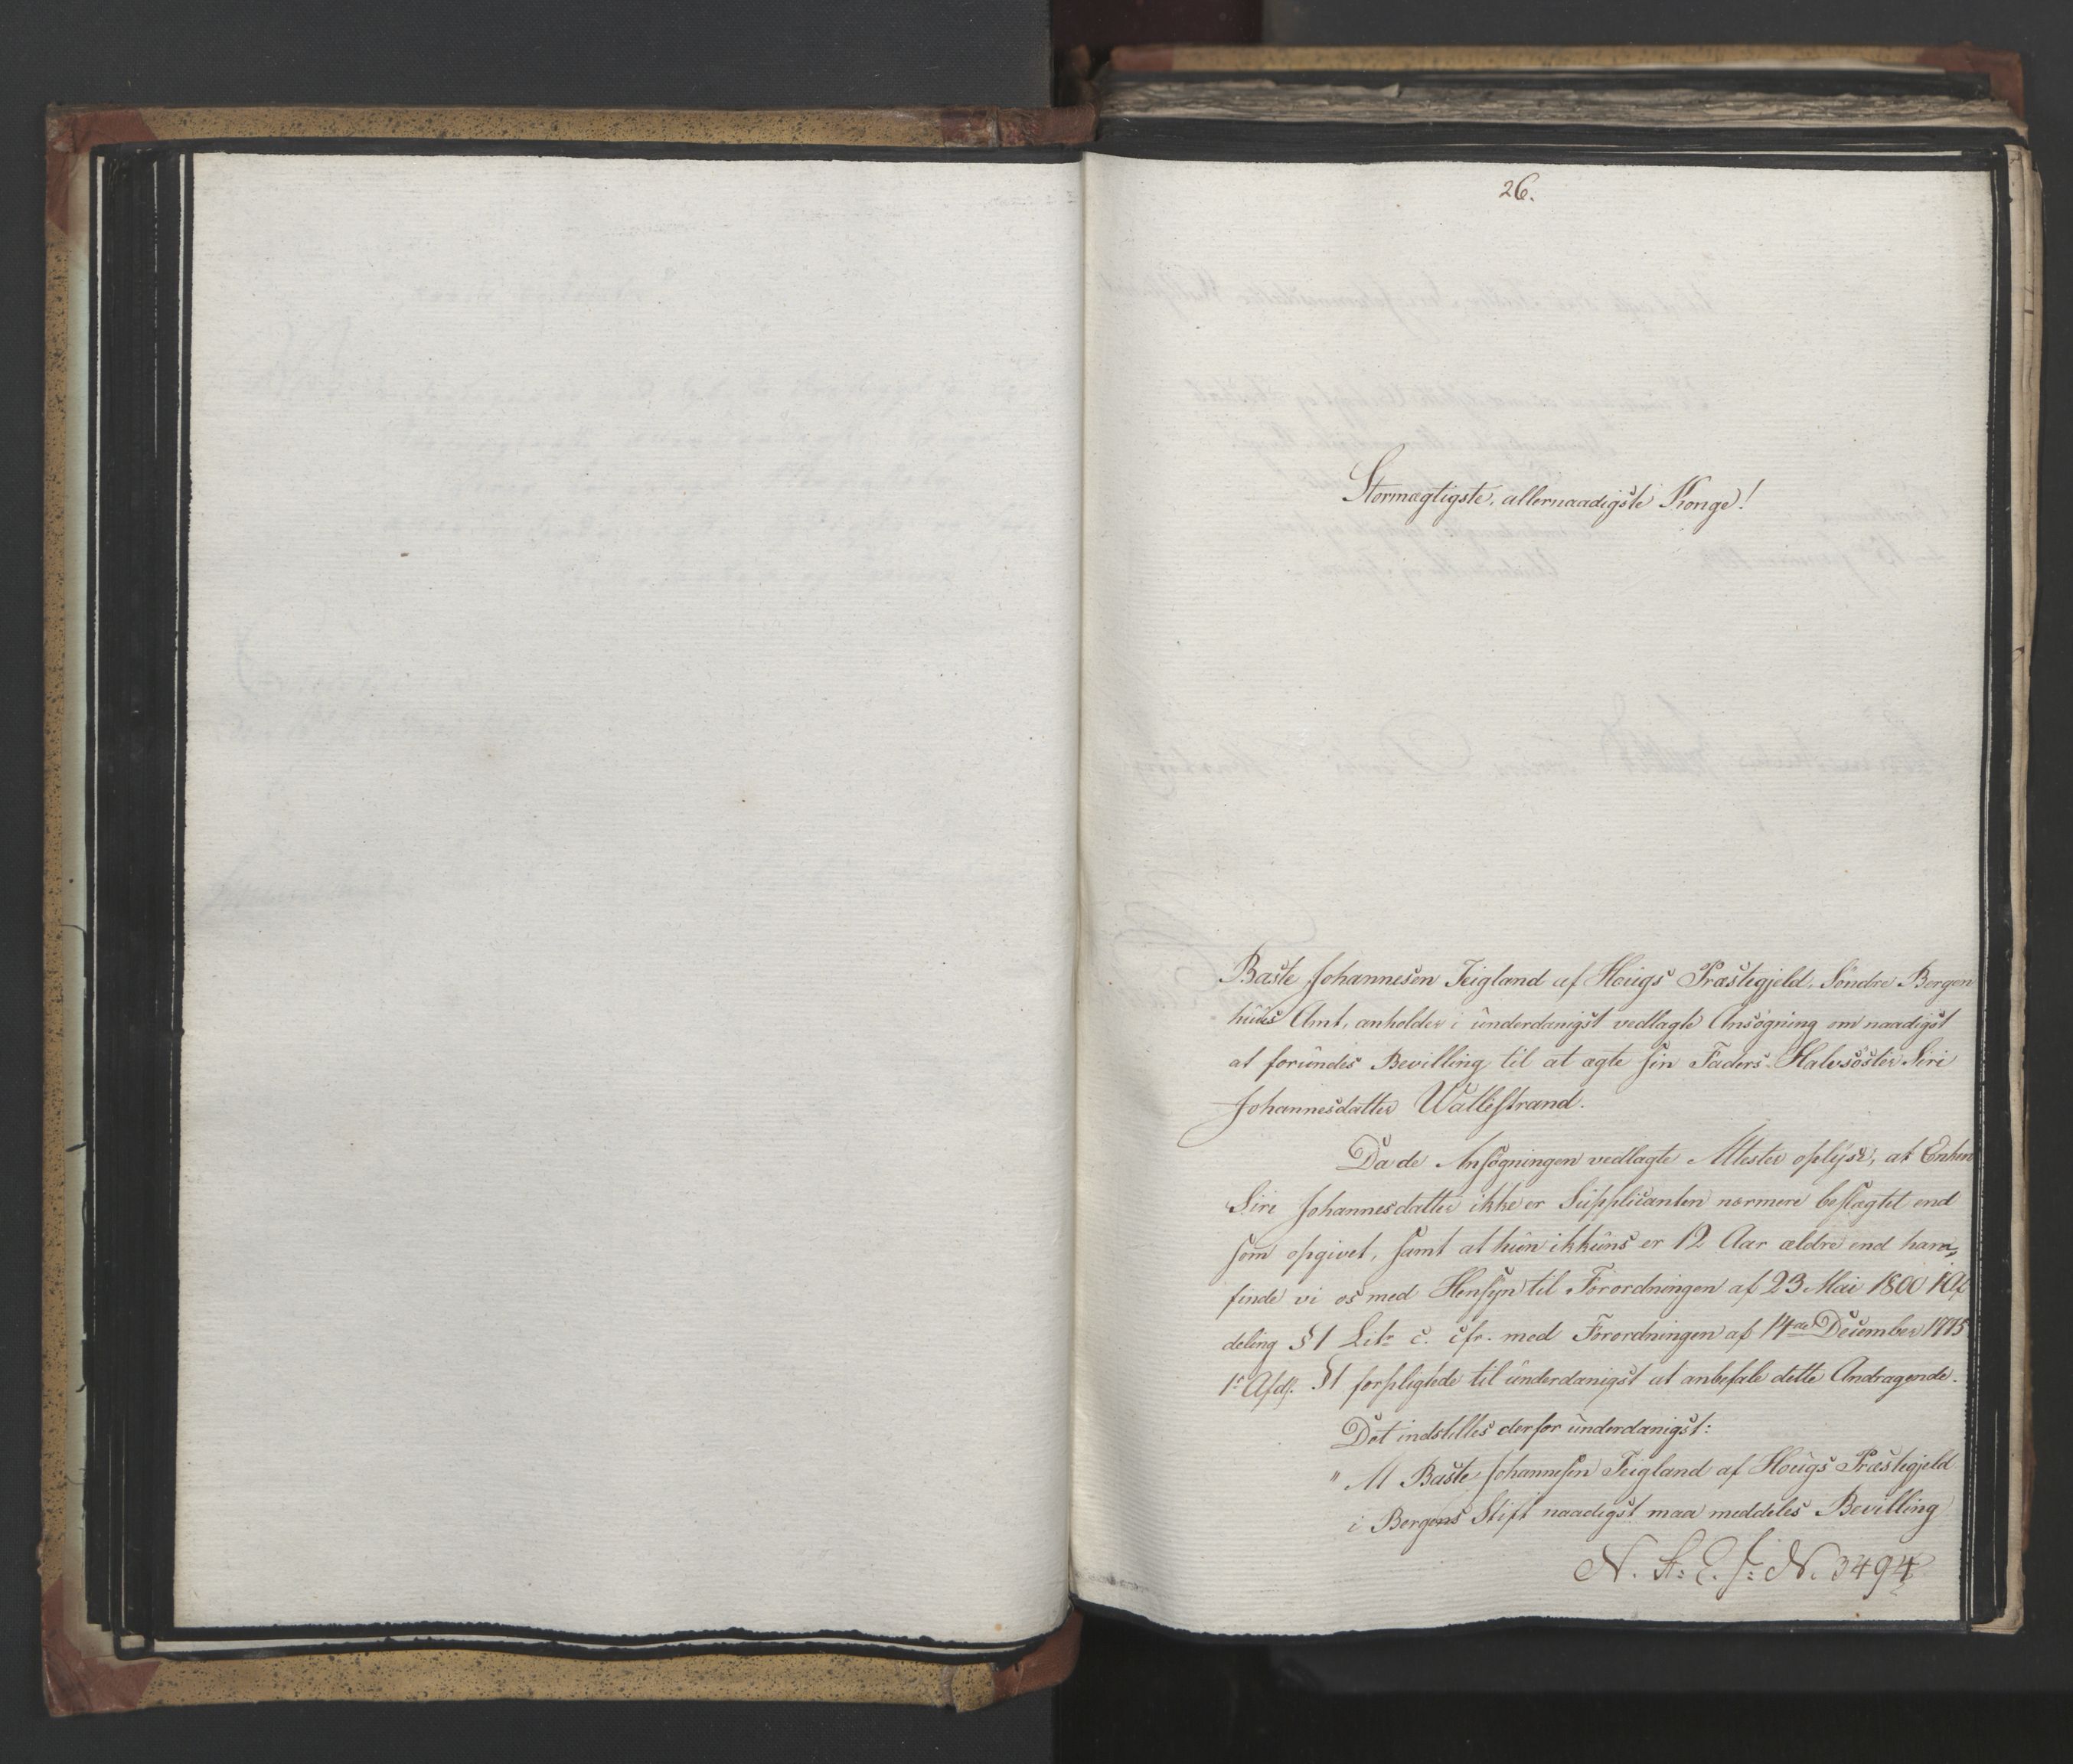 26.
Stormægtigste, allernaadigste Konge!
Baste Johannesen Teigland af Hougs Præstegjeld, Søndre Bergen
huus Amt, anholder i underdanigst vedlagte Ansøgning om naadigst
at forundes Bevilling til at ægte sin Faders Halvsøster Siri
Johannesdatter Wallestrand.
Da de Ansøgningen vedlagte Attester oplyse, at Enken
Siri Johannesdatter ikke er Supplicanten nærmere beslægtet end
som opgivet, samt at hun ikkuns er 12 Aar ældre end ham,
finde vi os med Hensyn til Forordningen af 23 Mai 1800 1 Af
deling § 1 Litr c. cfr. med Forordningen af 14de December 1775
1ste Afd. § 1 forpligtede til underdanigst at anbefale dette Andragende.
Det indstilles derfor underdanigst:
" At Baste Johannesen Teigland af Hougs Præstegjeld
i Bergens Stift naadigst maa meddeles Bevilling
N. St: E. J: N. 3494